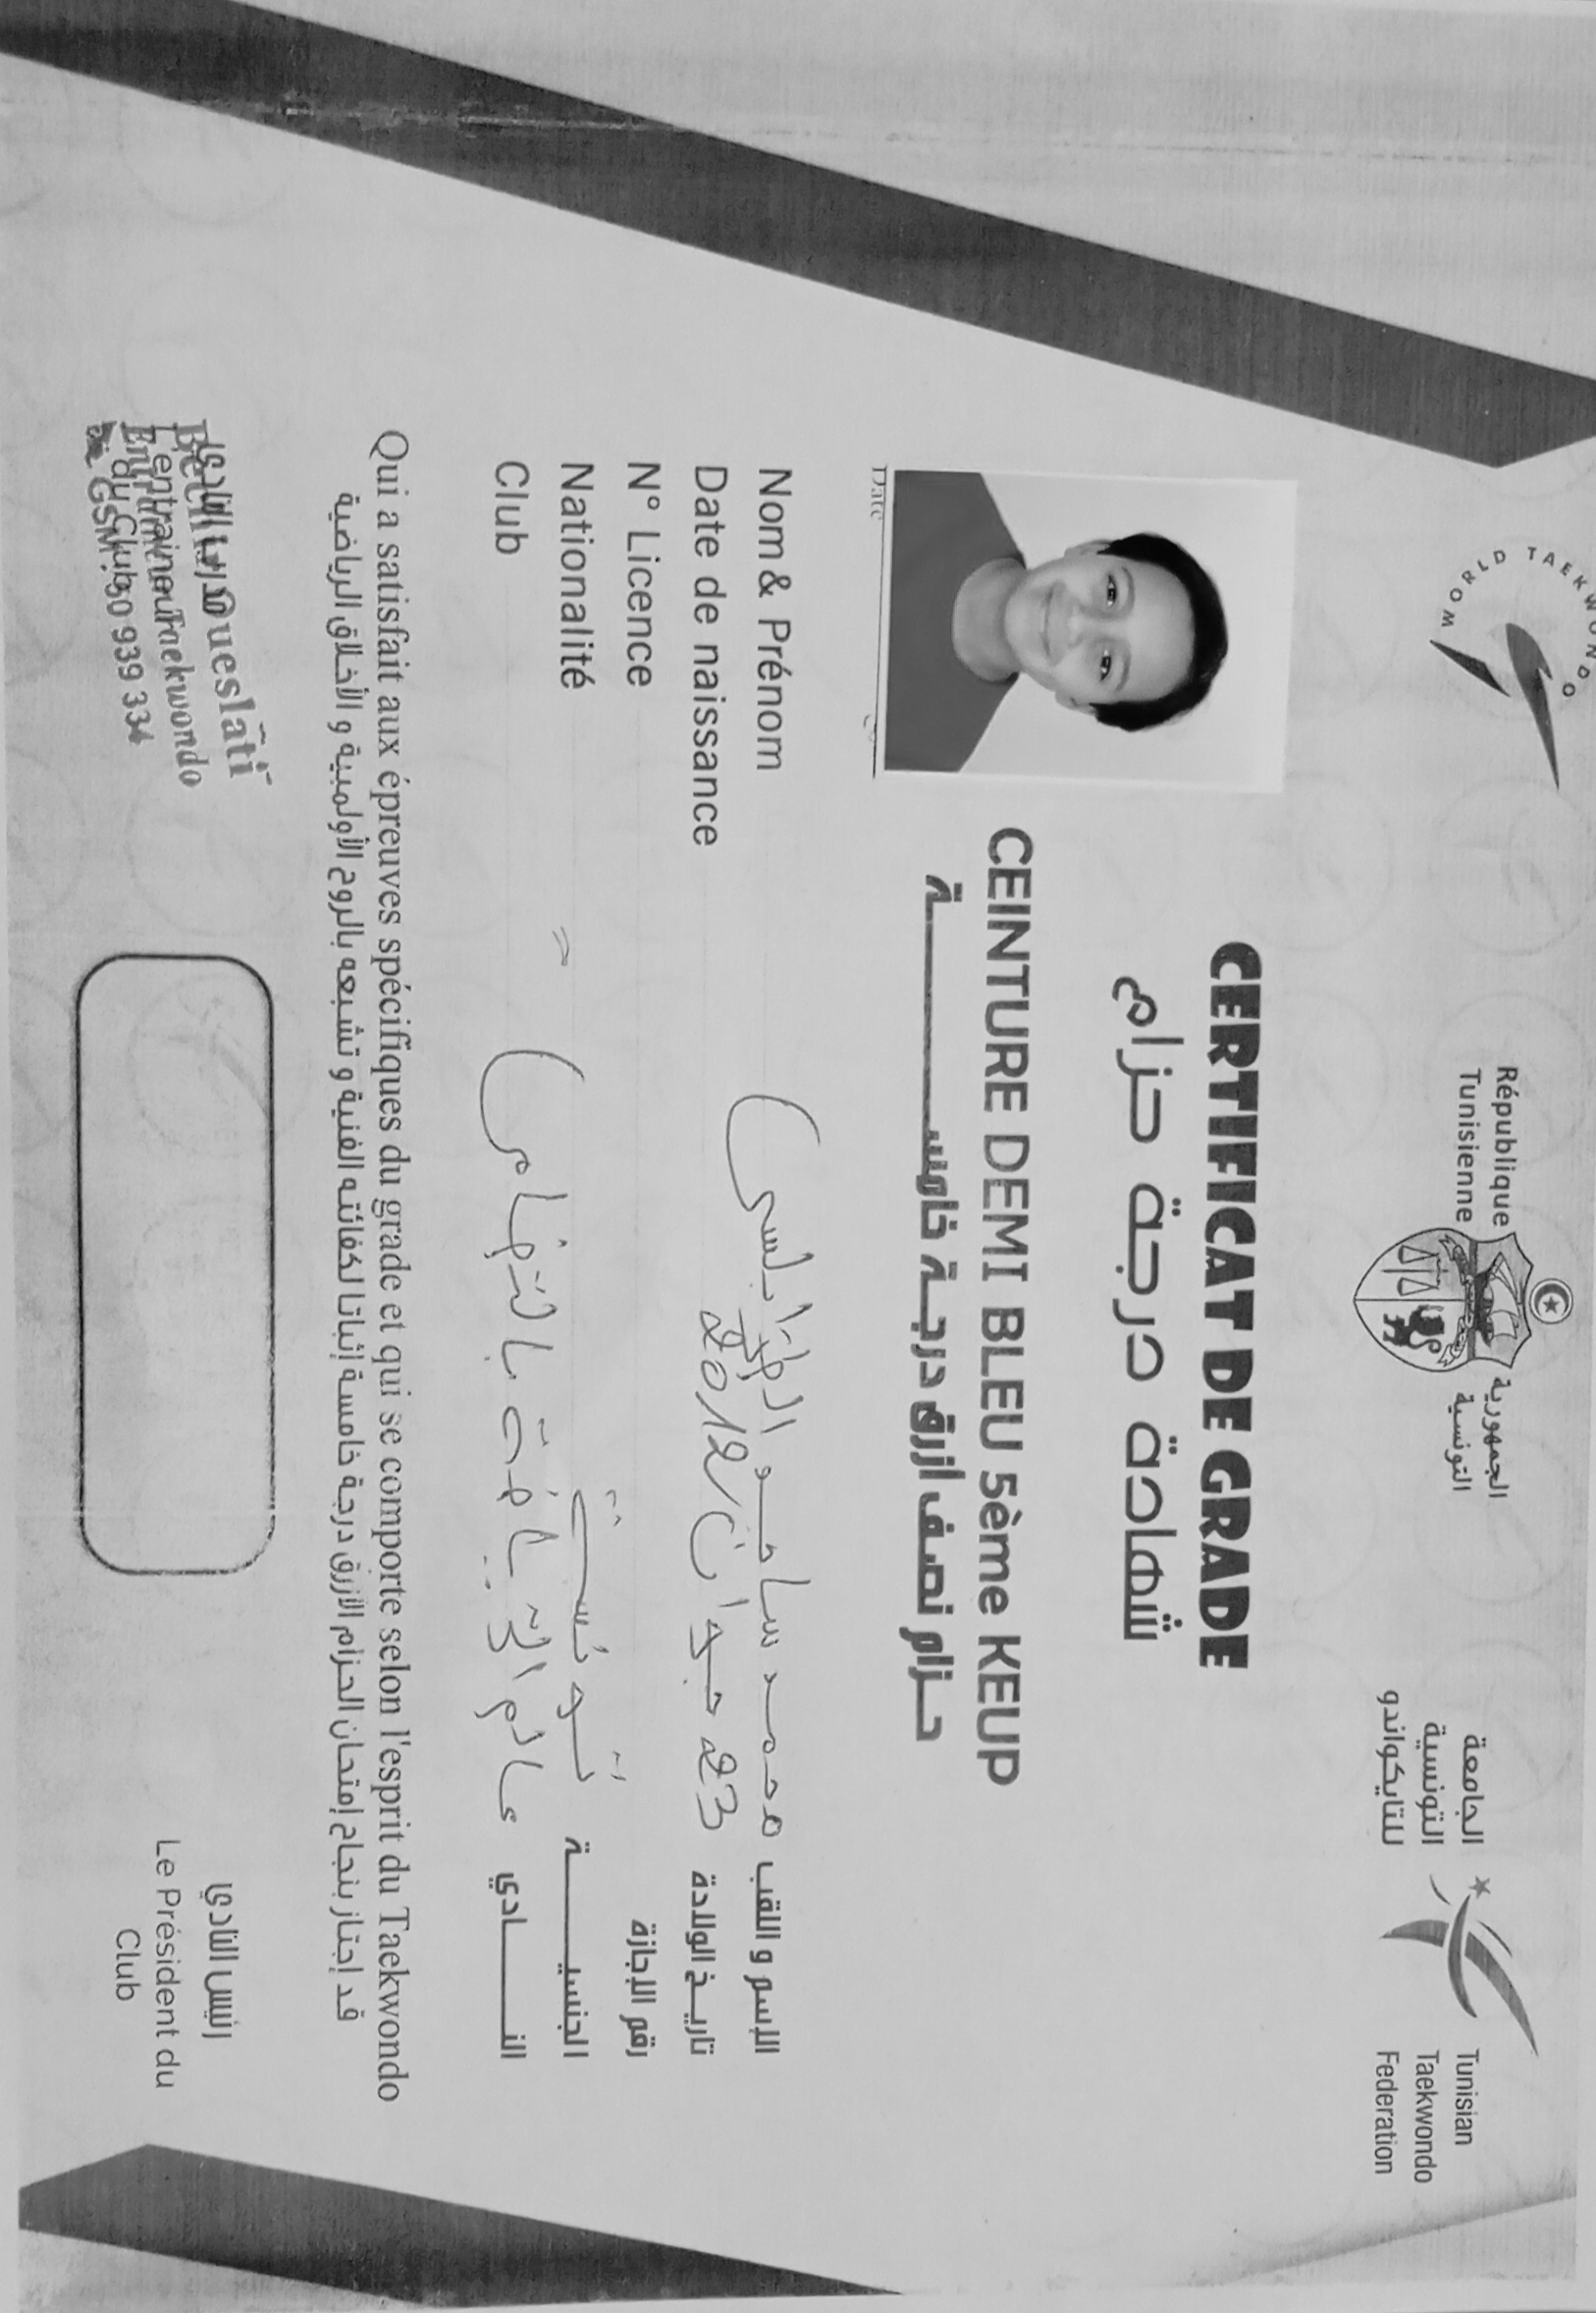 WORLD TAEKWONDO
République
Tunisienne
الجمهورية
التونسية
الجامعة
التونسية
للتايكواندو
Tunisian
Taekwondo
Federation
CERTIFICAT DE GRADE
شهادة درجة حزام
CEINTURE DEMI BLEU 5ème KEUP
حزام نصف أزرق درجة خامسة
Date
Nom & Prénom محمد ساجد الطرابلسي الإسم و اللقب
Date de naissance 23 جوان 2012 تاريخ الولادة
N° Licence رقم الإجازة
Nationalité تونسية الجنسية
Club عالم الرياضة بالتضامن النادي
Qui a satisfait aux épreuves spécifiques du grade et qui se comporte selon l'esprit du Taekwondo
قد إجتاز بنجاح إمتحان الحزام الأزرق درجة خامسة إثباتا لكفائته الفنية و تشبعه بالروح الأولمبية و الأخلاق الرياضية
مدرب النادي
L'entraineur
du Club
Oueslati
Taekwondo
GSM: 50 939 334
رئيس النادي
Le Président du
Club